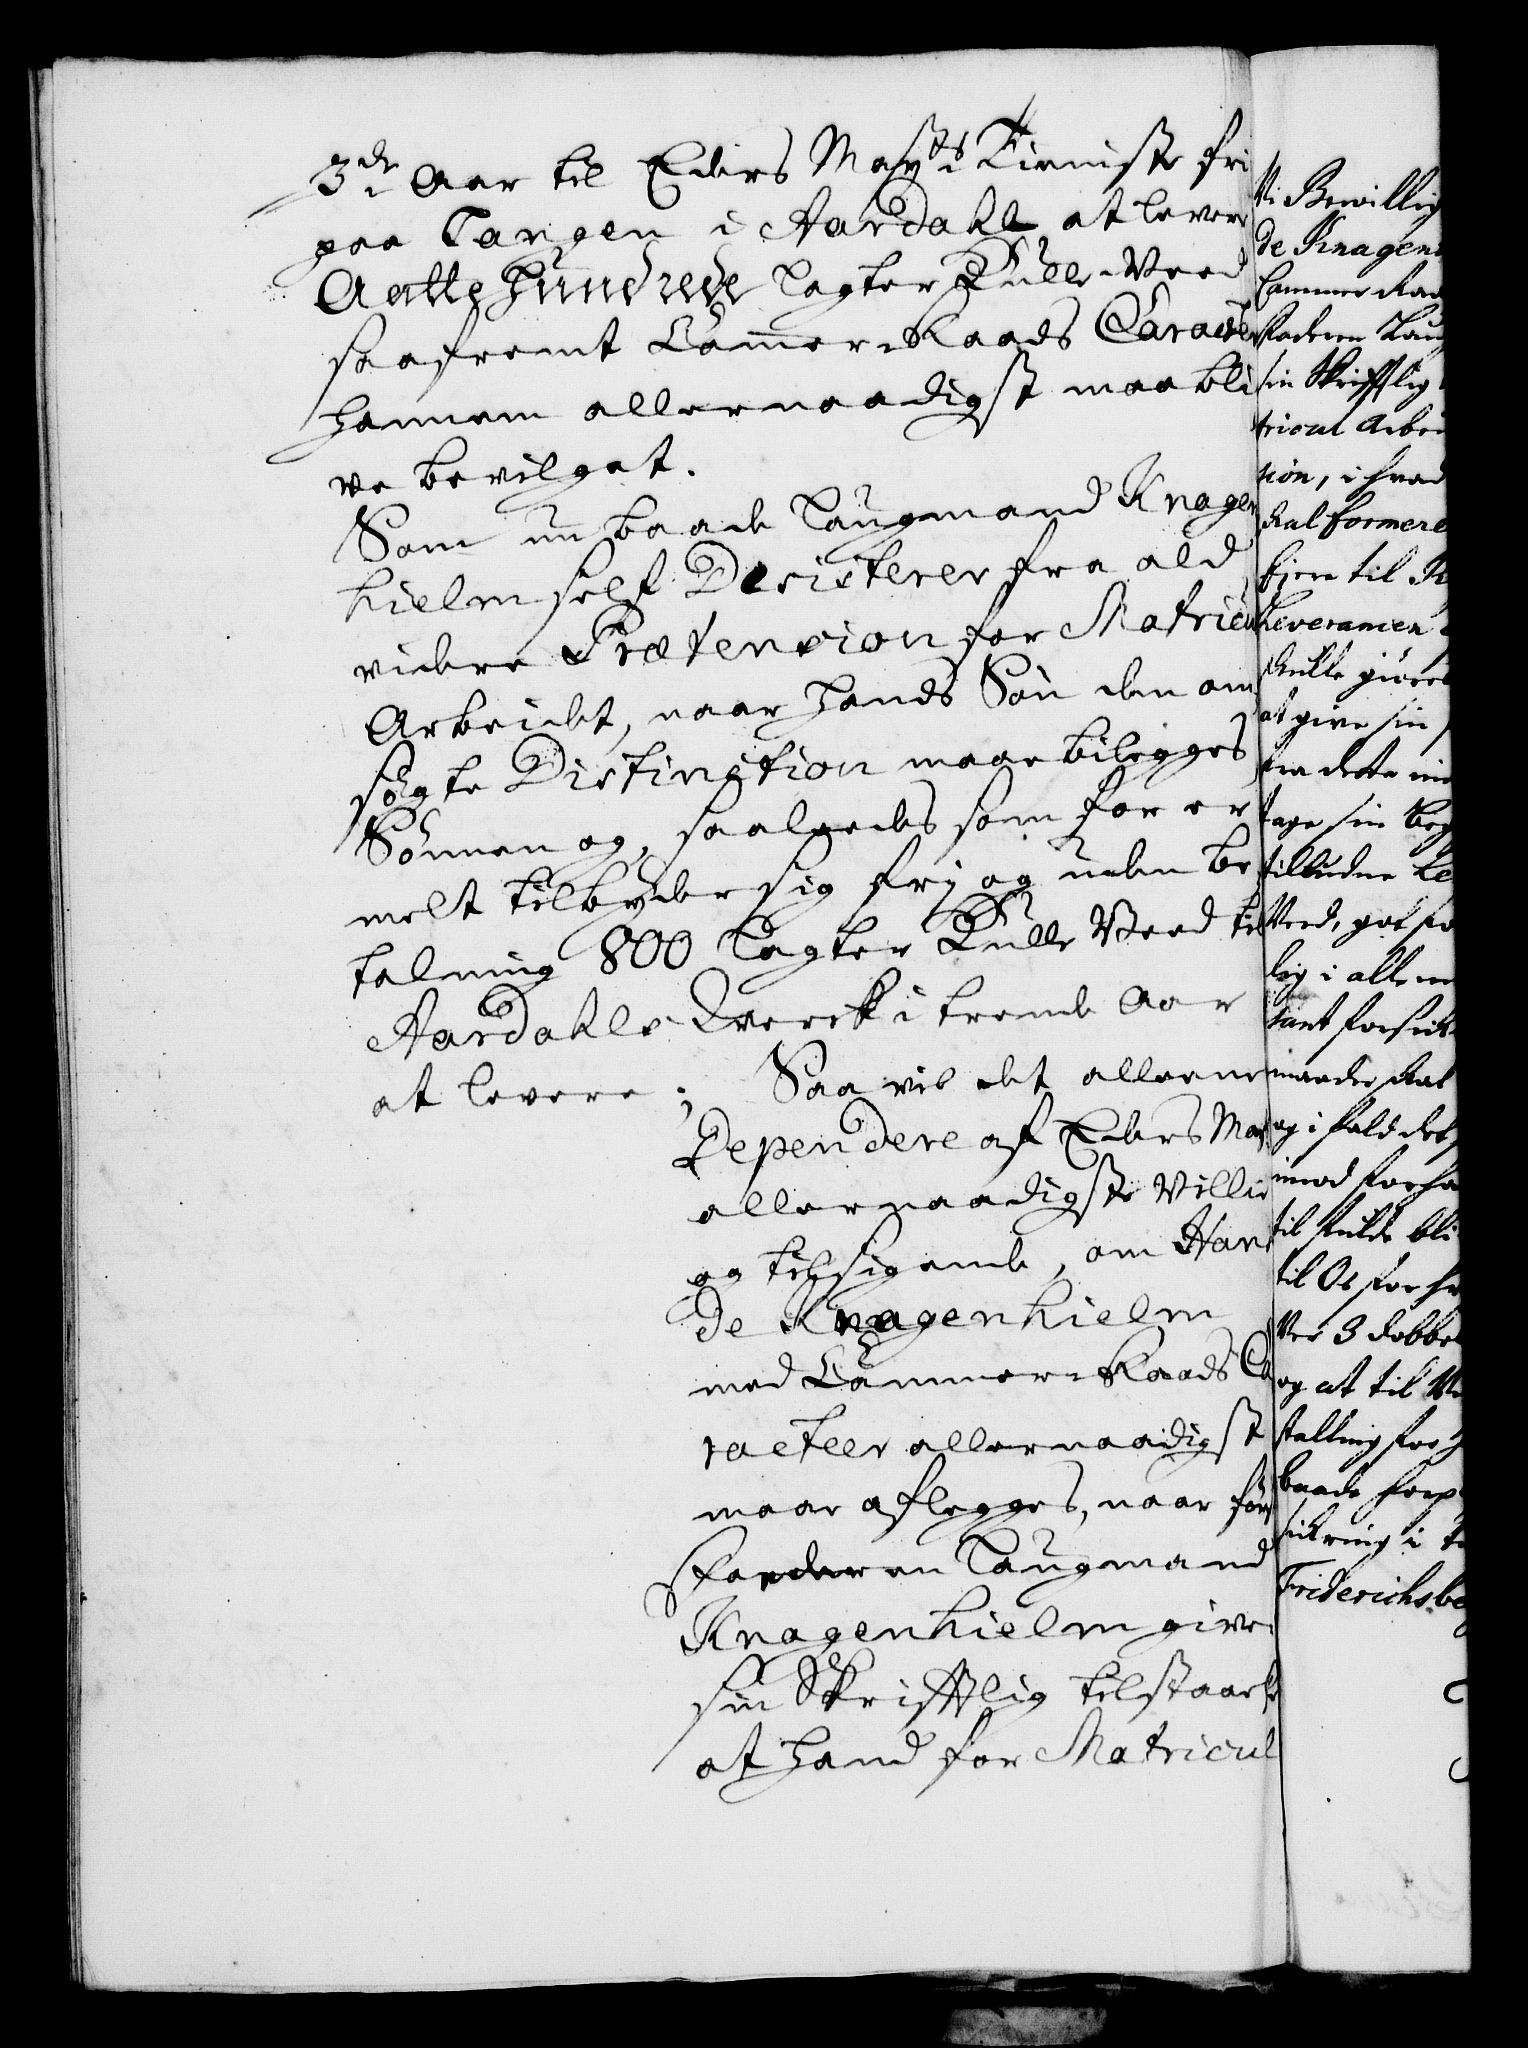 3de Aar til Eders Mayts Tieniste fri
paa Tangen i Aardahl at lever
Aatte Hundrede Lagter Kulle-Veed
saafremt Cammer-Raads Caracter
hannem allernaadigst maa bli
ve bevilget.
Som nu baade Laugmand Knagen
hielm self Desisterer fra ald
videre Prætension for Matricul
Arbeidet, naar hands Søn den om
søgte Distinction maae bilegges
Sønnen og, saaledes som for er
melt tilbyder sig frj og uden be
talning 800 Lagter Kulle Veed til
Aardahls Verck i trende Aar
at levere; Saa vil det alleene
Dependere af Eders May
allernaadigste Villie
og tilsigende, om Hans
de Knagenhielm
med Cammer-Raads Ca
racteer allernaadigst
maae aflegges, naar før
Faderen Laugmand
Knagenhielm giver
sin Skrifftlig tilstaaelse
at hand for Matricul
Vi Bevillig
de Knagen
Cammer Raa
Faderen Laug
sin Skrifftlig
tricul Arbei
sion, i hvad
skal formere
Leverancen
skulle giøres
at give sin
fra dette
tage sin Beg
tilbudne Le
Veed, got
lig i alle
maader skal
og i fald det
imod forha
til fulde bli
til Os for
3 dobbe
og at til
stalling for
baade
sickring i
Friderichsbe